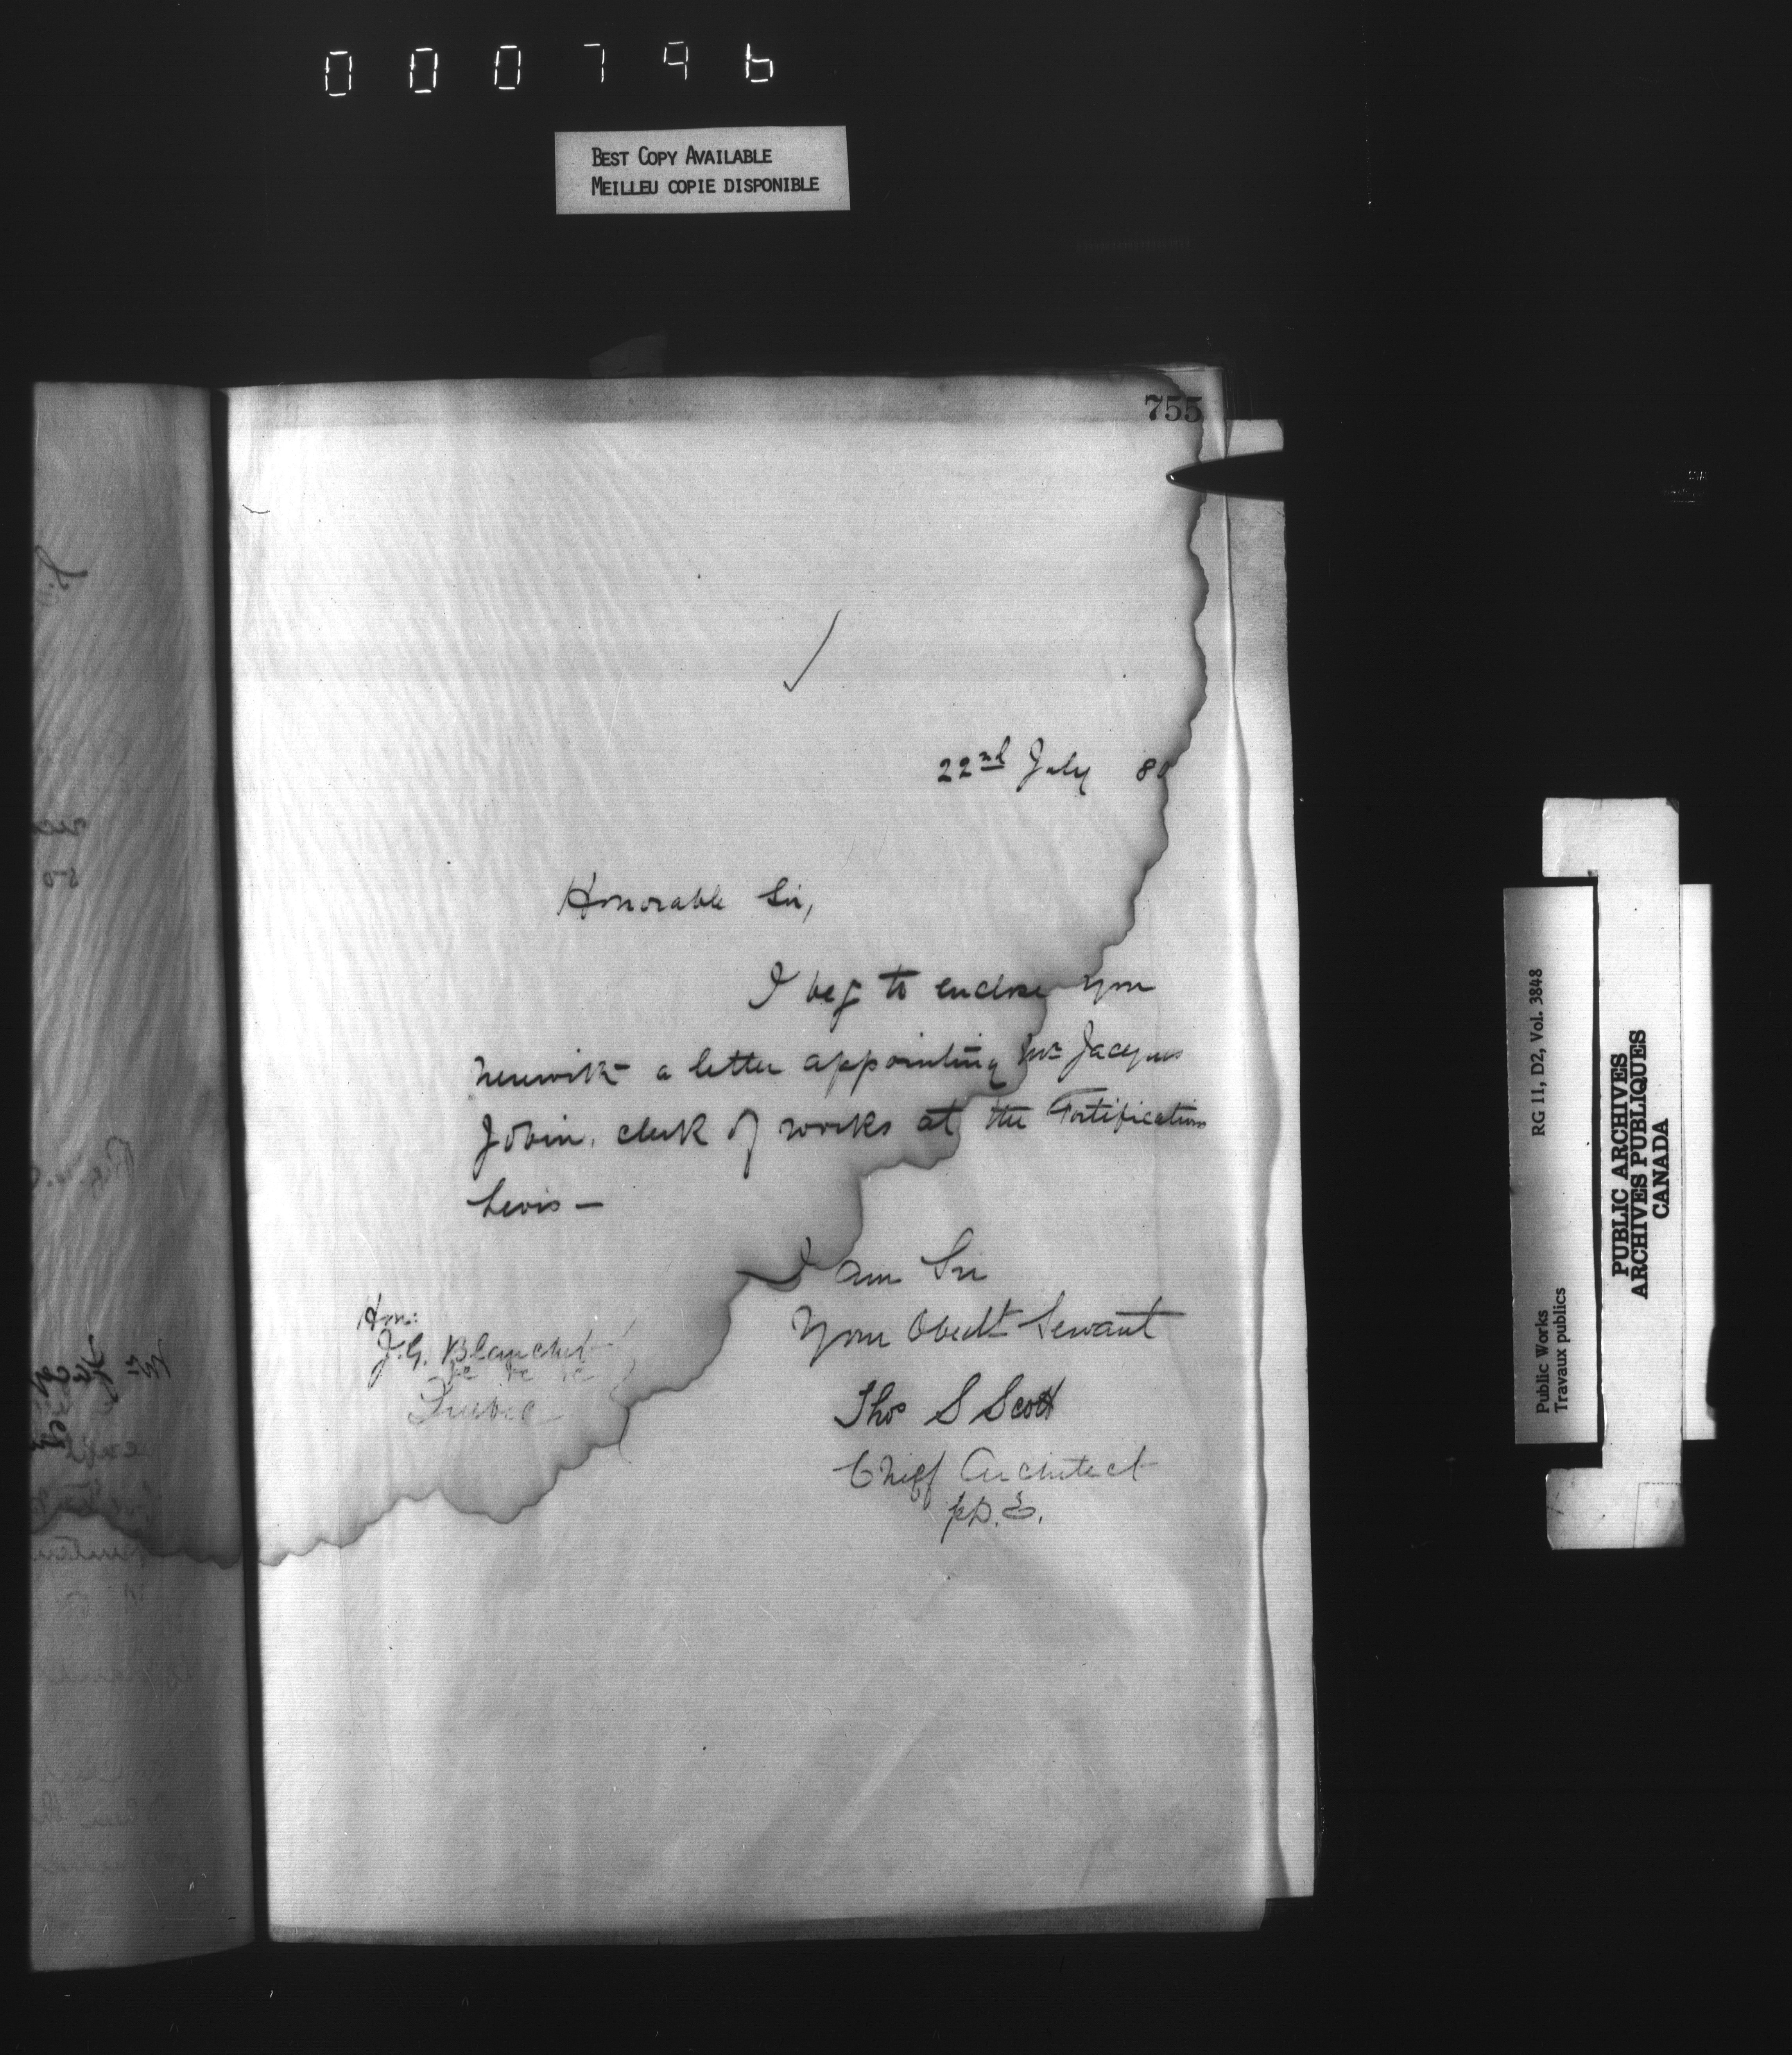 000796
BEST COPY AVAILABLE
MEILLEU COPIE DISPONIBLE
755
22nd July 80
Honorable Sir,
I beg to enclose you
herewith a letter appointing Mr Jacques
Jobin, clerk of works at the Fortifications
Levis —
I am Sir
Your Obedt Servant
Thos S Scott
Chief Architect
Hon:
J.G. Blanchet
&c &c &c
Quebec
Public Works
Travaux publics
RG 11, D2, Vol. 3848
PUBLIC ARCHIVES
ARCHIVES PUBLIQUES
CANADA